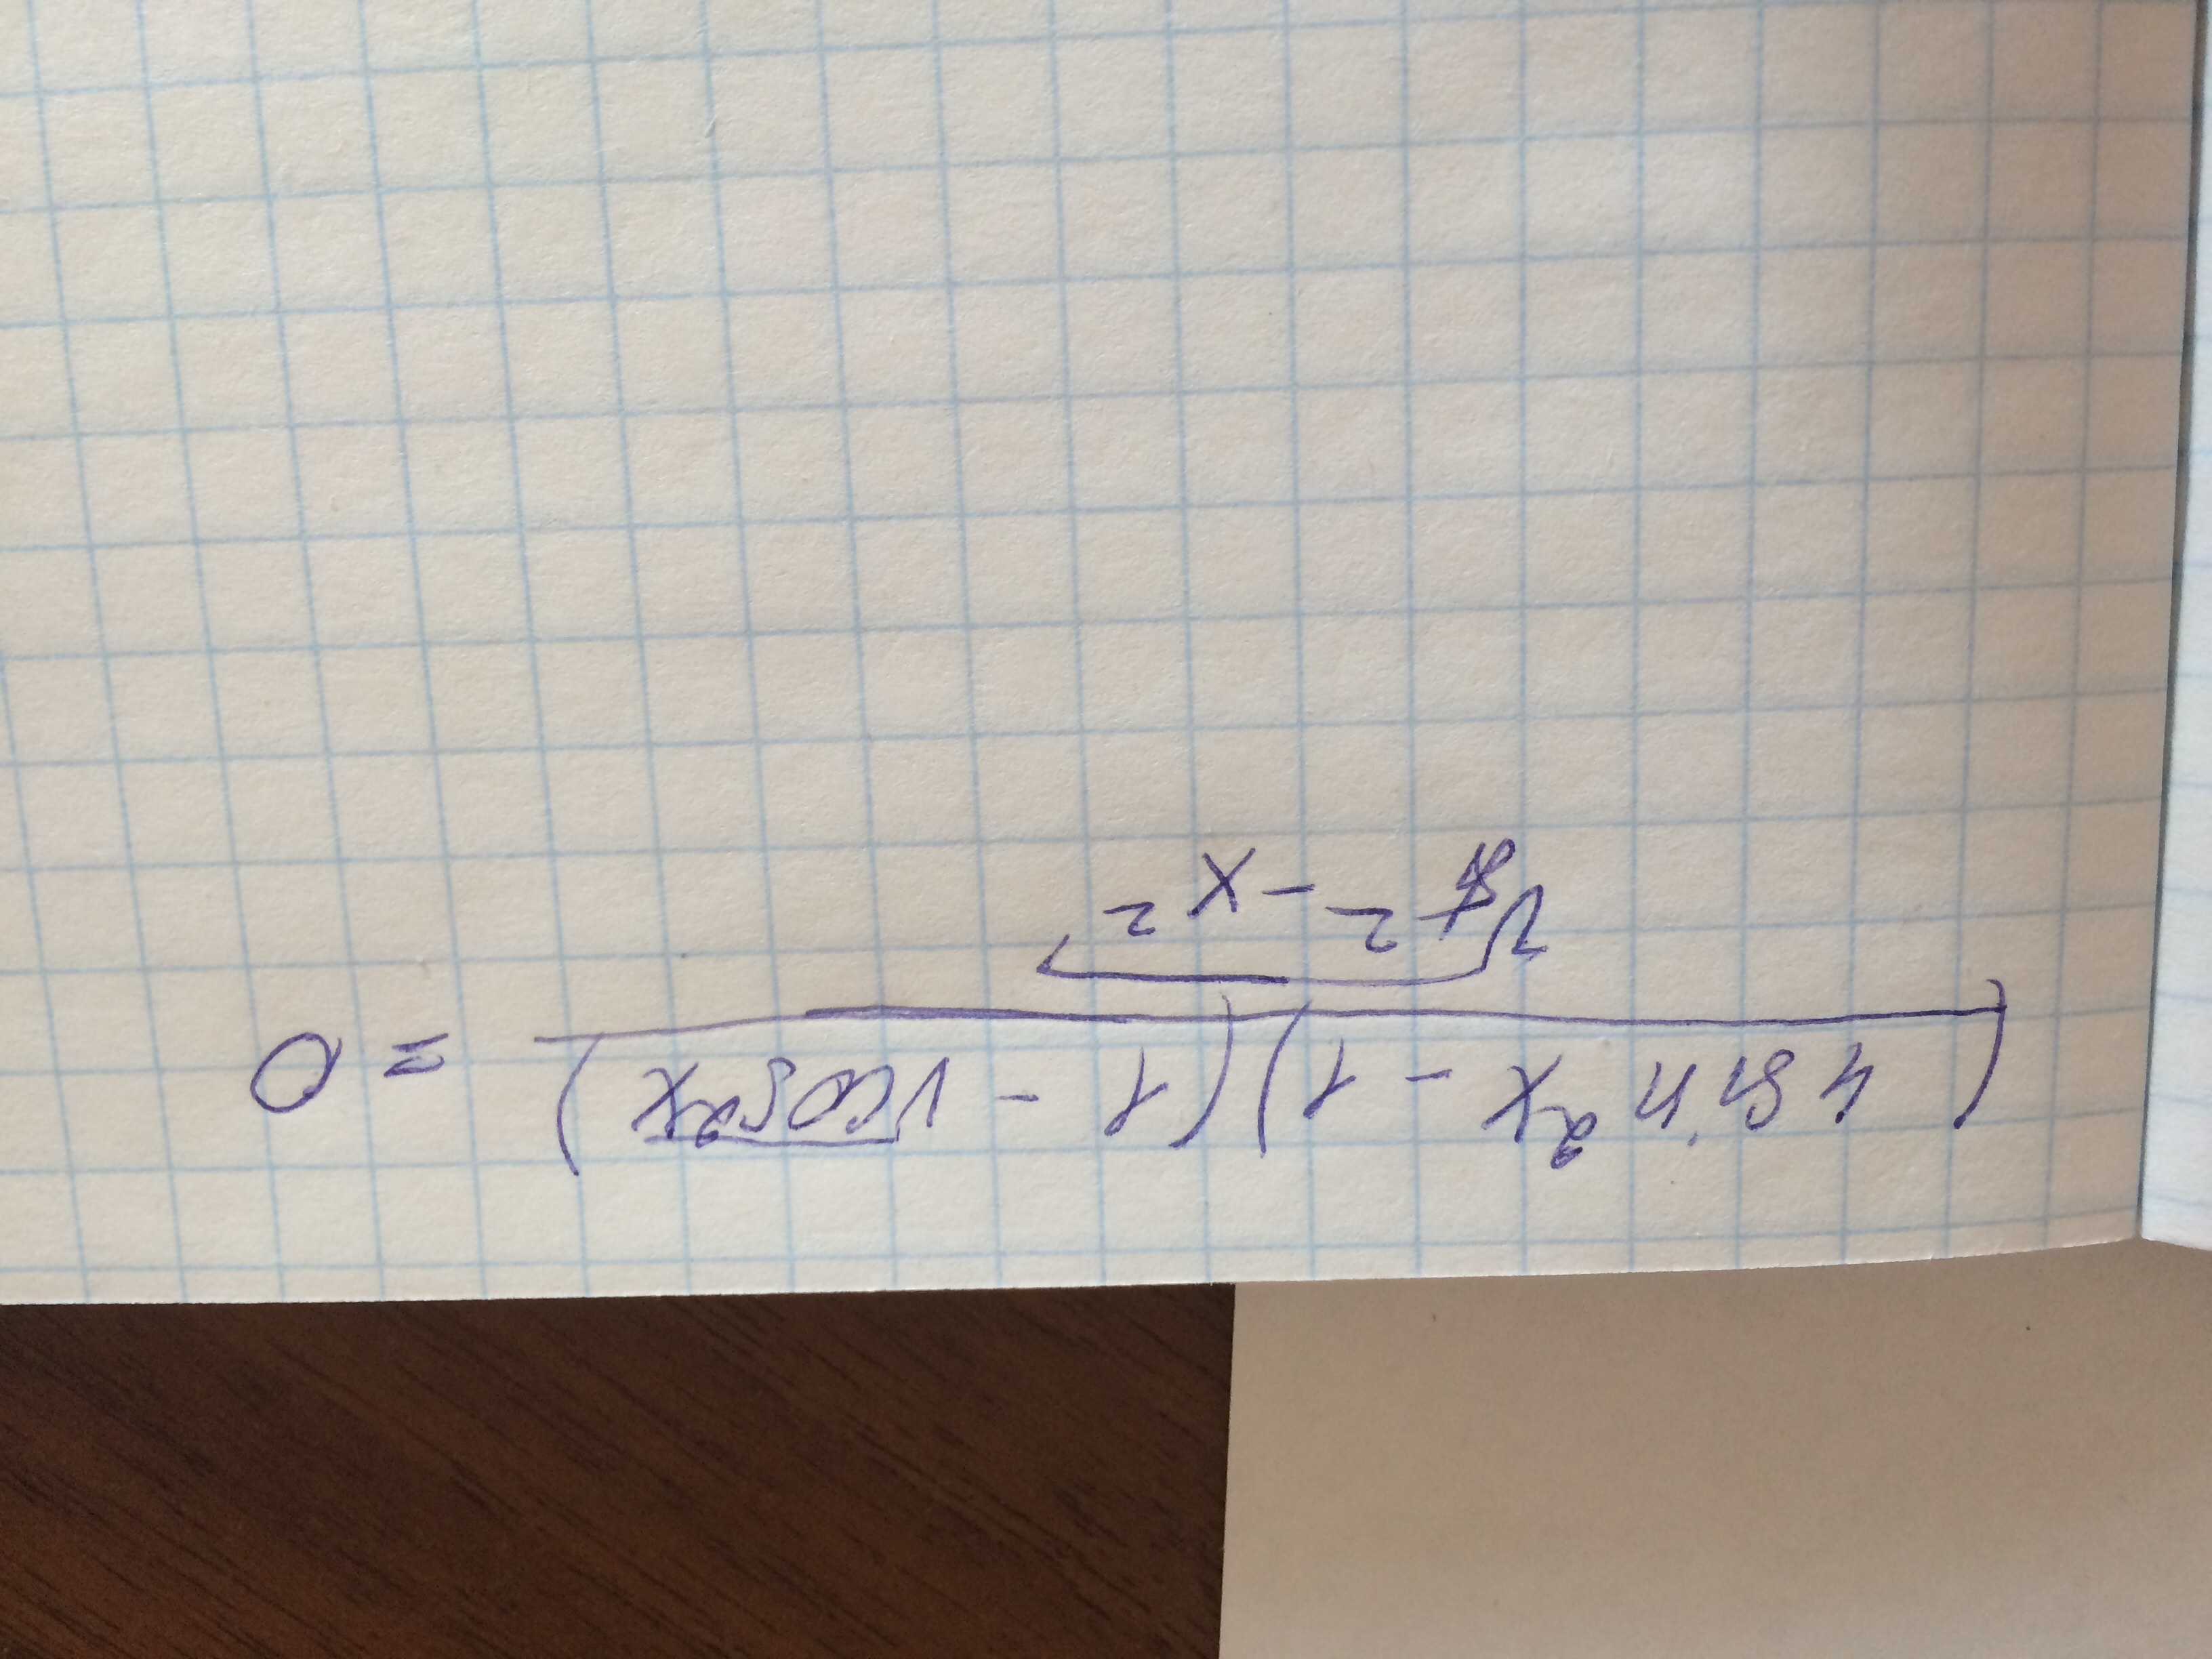 (4 sin²x - 1)(1 - √cos2x) = 0
√ ² - x²